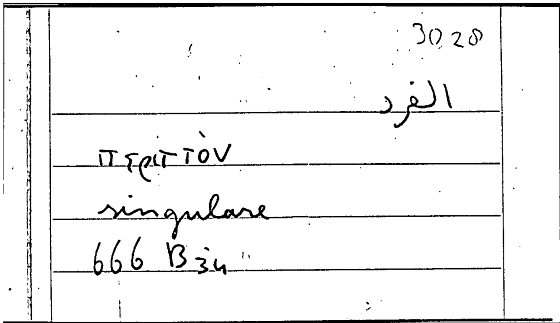 3028
الفرد
περιττὸν
singulare
666 B 34